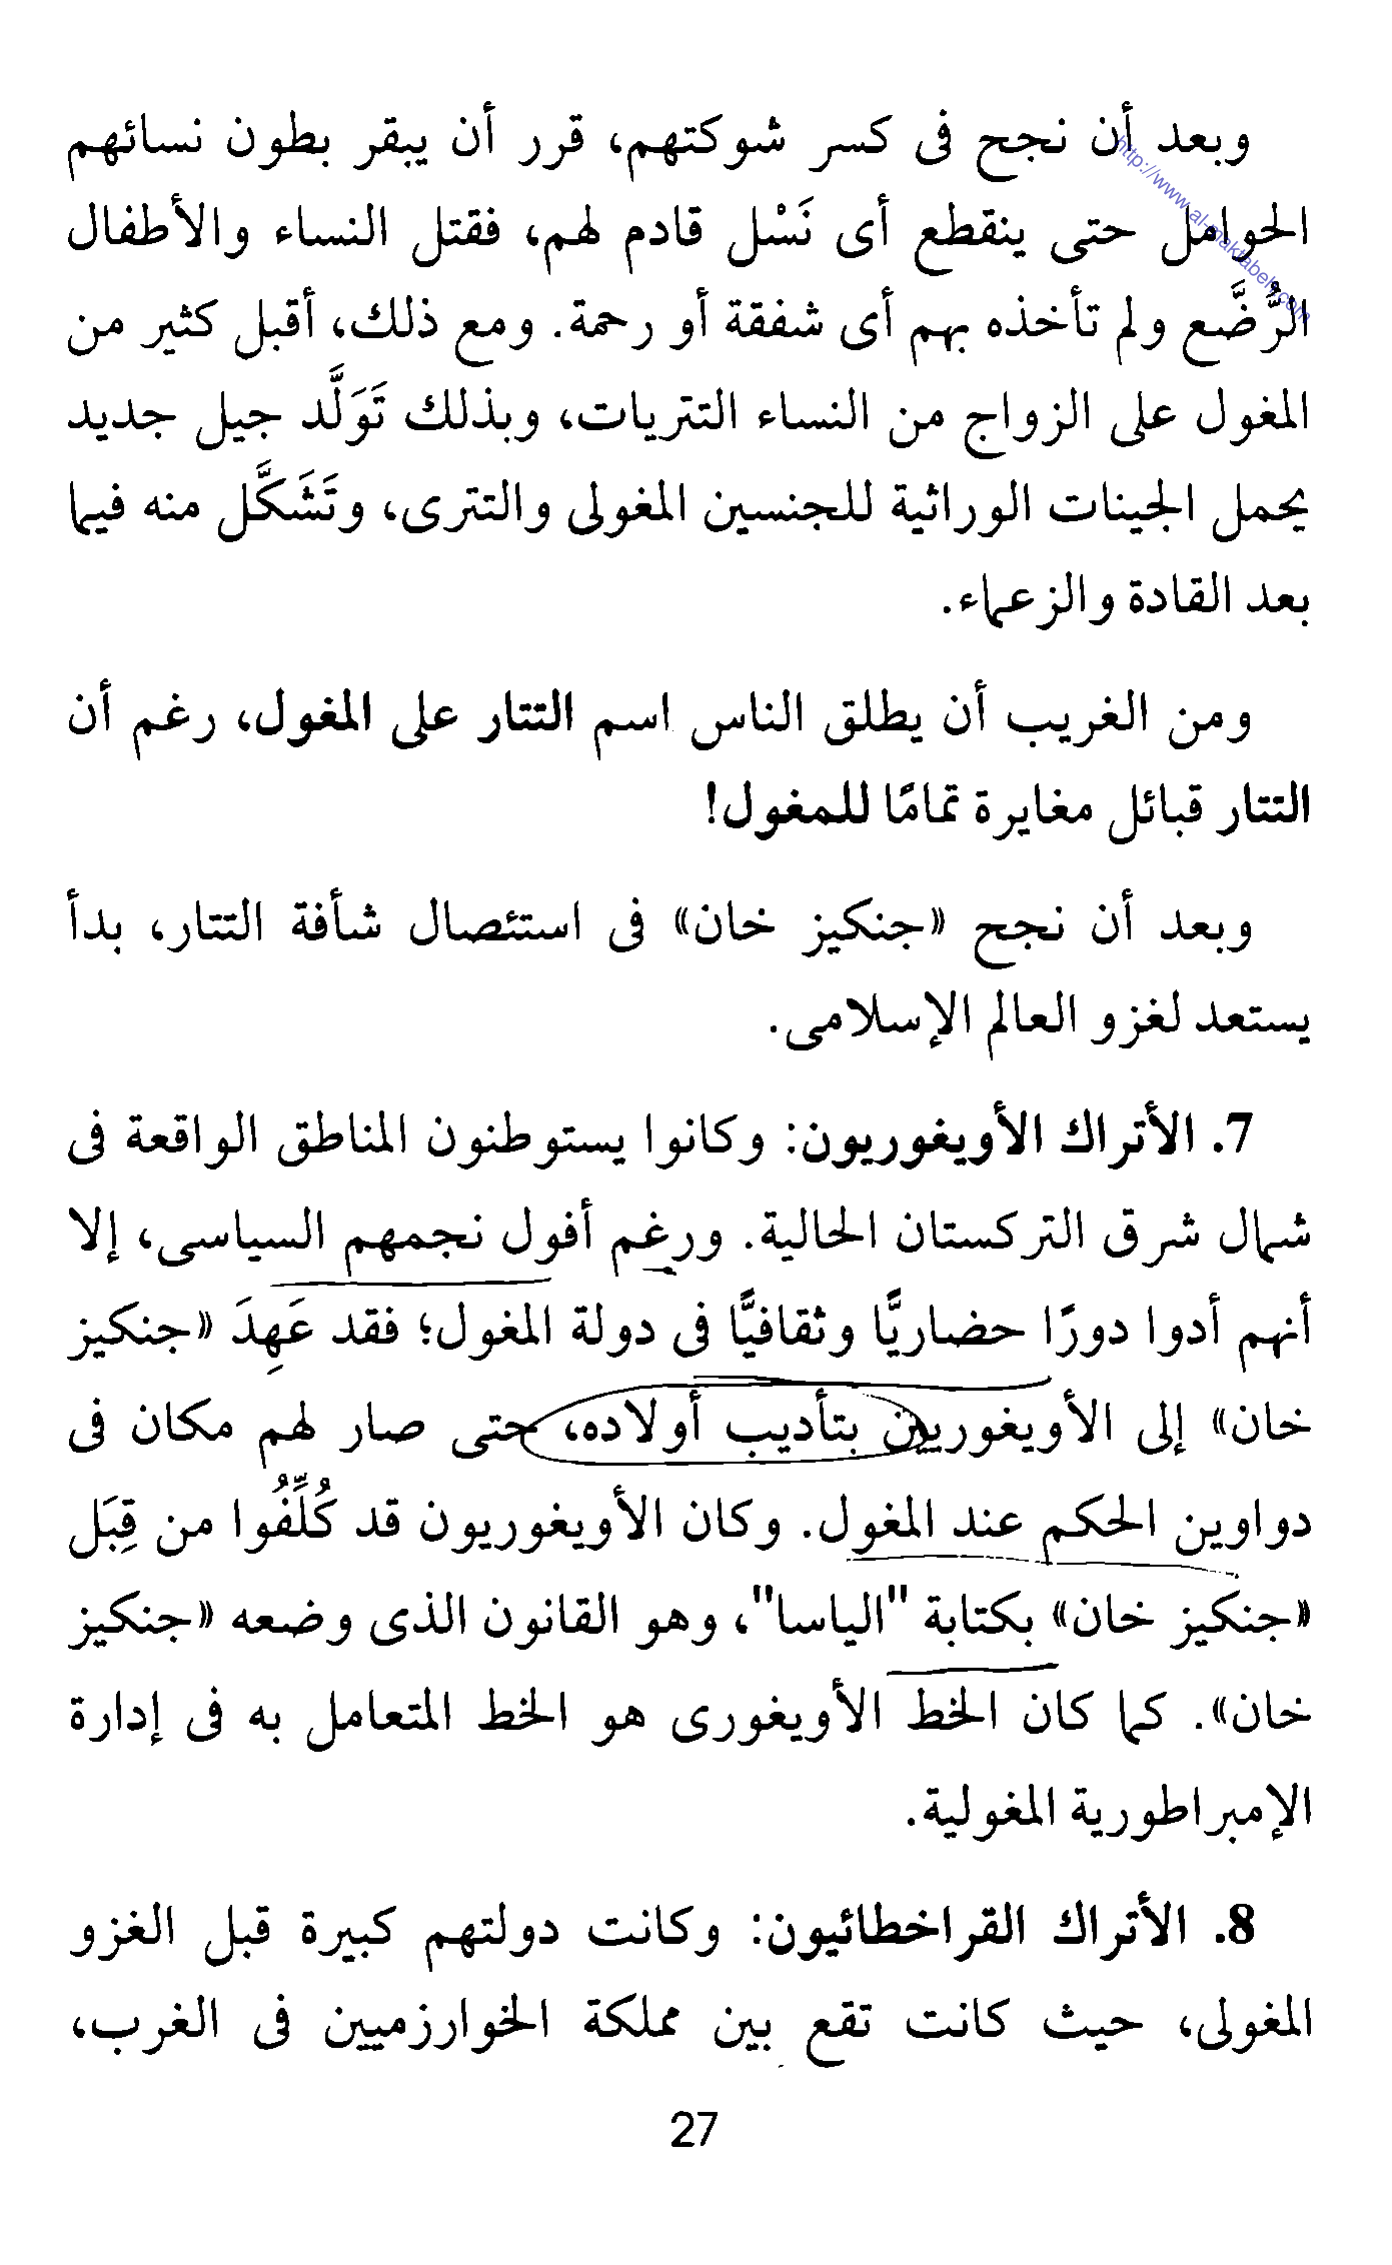 وبعد أن نجح فى كسر شوكتهم، قرر أن يبقر بطون نسائهم
الحوامل حتى ينقطع أى نَسْل قادم لهم، فقتل النساء والأطفال
الرُّضَّع ولم تأخذه بهم أى شفقة أو رحمة. ومع ذلك، أقبل كثير من
المغول على الزواج من النساء التتريات، وبذلك تَوَلَّد جيل جديد
يحمل الجينات الوراثية للجنسين المغولى والتترى، وتَشَكَّل منه فيما
بعد القادة والزعماء.
ومن الغريب أن يطلق الناس اسم التتار على المغول، رغم أن
التتار قبائل مغايرة تمامًا للمغول!
وبعد أن نجح «جنكيز خان» فى استئصال شأفة التتار، بدأ
يستعد لغزو العالم الإسلامى.
7. الأتراك الأويغوريون: وكانوا يستوطنون المناطق الواقعة فى
شمال شرق التركستان الحالية. ورغم أفول نجمهم السياسى، إلا
أنهم أدوا دورًا حضاريًّا وثقافيًّا فى دولة المغول؛ فقد عَهِدَ «جنكيز
خان» إلى الأويغوريين بتأديب أولاده، حتى صار لهم مكان فى
دواوين الحكم عند المغول. وكان الأويغوريون قد كُلِّفُوا من قِبَل
«جنكيز خان» بكتابة "الياسا"، وهو القانون الذى وضعه «جنكيز
خان». كما كان الخط الأويغورى هو الخط المتعامل به فى إدارة
الإمبراطورية المغولية.
8. الأتراك القراخطائيون: وكانت دولتهم كبيرة قبل الغزو
المغولى، حيث كانت تقع بين مملكة الخوارزميين فى الغرب،
27
http://www.al-maktabeh.com